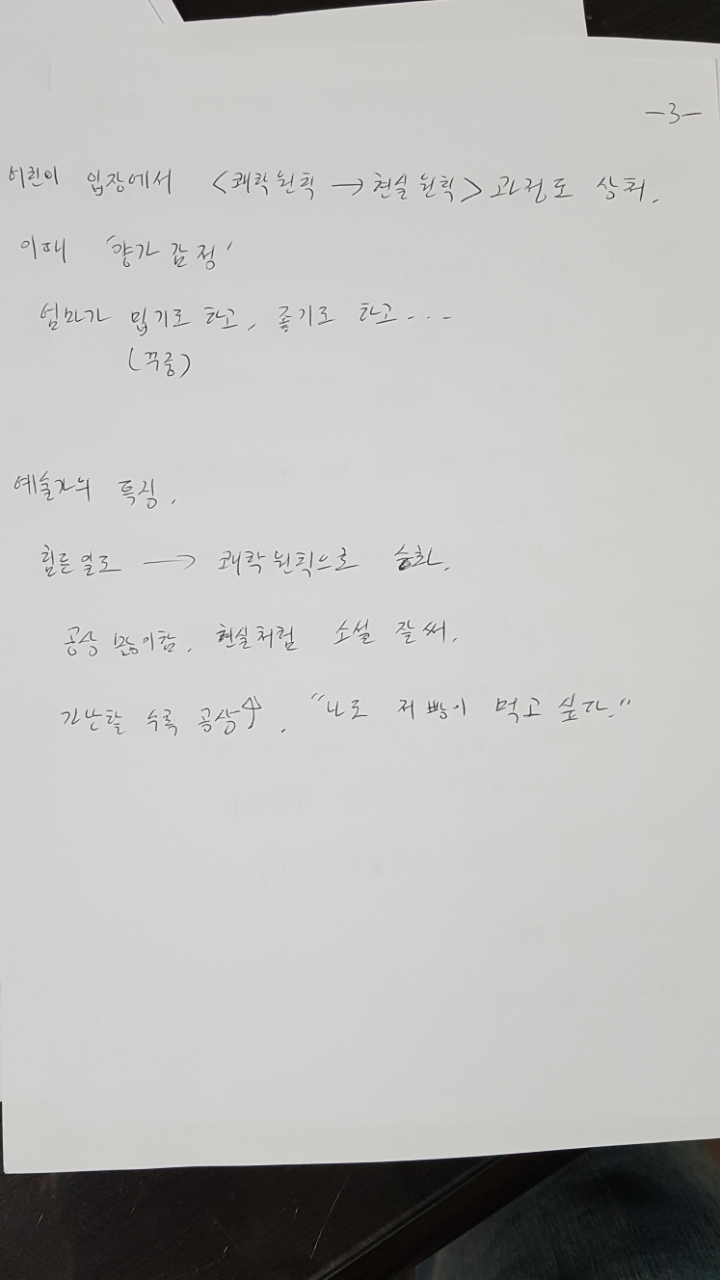 -3-
어린이 입장에서 <쾌락원칙 → 현실원칙> 과정도 상처.
이때 '양가 감정'
엄마가 밉기도 하고, 좋기도 하고...
(꾸중)
예술가의 특징.
힘든 일도 → 쾌락원칙으로 승화.
공상 많이함. 현실처럼 소설 잘써.
가난할 수록 공상↑. "나도 저 빵이 먹고 싶다."